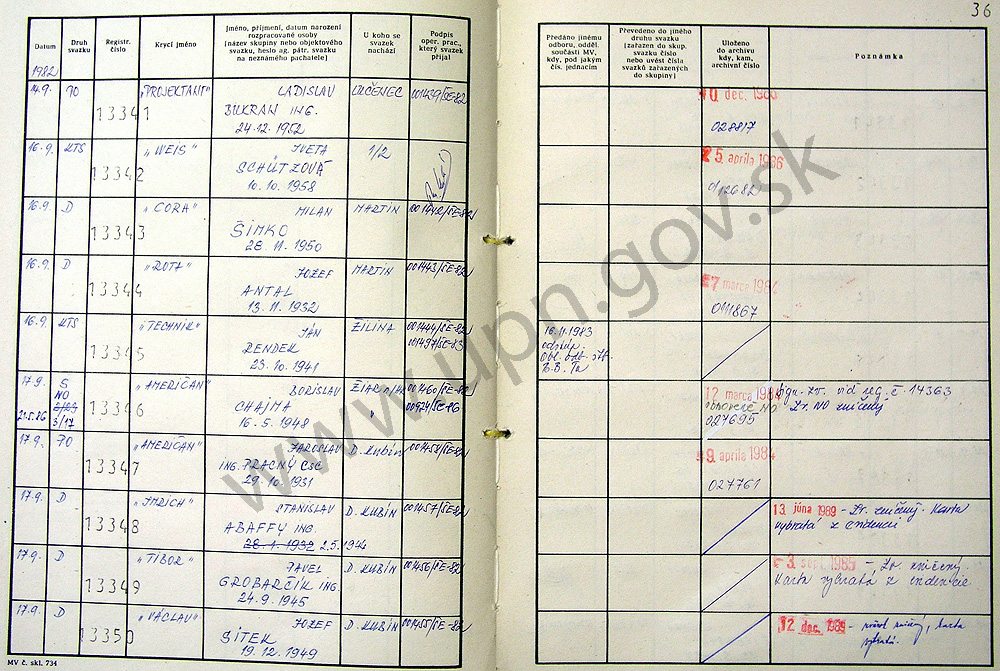 36
Datum
Druh svazku
Registr. číslo
Krycí jméno
Jméno, příjmení, datum narození
rozpracované osoby
(název skupiny nebo objektového
svazku, heslo ag. pátr. svazku
na neznámého pachatele)
U koho se
svazek
nachází
Podpis
oper. prac.,
který svazek
přijal
Předáno jinému
odboru, odděl.
součásti MV,
kdy, pod jakým
čís. jednacím
Převedeno do jiného
druhu svazku
(zařazen do skup.
svazku číslo
nebo uvést čísla
svazků zařazených
do skupiny)
Uloženo
do archivu
kdy, kam,
archivní číslo
Poznámka
1982
14.9. PO 13341 „PROJEKTANT" LADISLAV LUČENEC 001439/SE-82
BUKRAN ING.
24.12.1952
dec. 1986
028817
16.9. KTS 13342 „WEIS" IVETA 1/2
SCHÜTZOVÁ
10.10.1958
5 apríla 1986
16.9. D 13343 „CORA" MILAN MARTIN
ŠIMKO
28.11.1950
16.9. D 13344 „ROTA" JOZEF MARTIN 001443/SE-82
ANTAL
13.11.1932
7 marca 1984
16.9. KTS 13345 „TECHNIK" JÁN ŽILINA 001444/SE-82
RENDEK 001497/SE-83
23.10.1941
16.11.1983
odstúp.
B.B.
17.9. S 13346 „AMERIČAN" BORISLAV ŽIAR n/Hr. 001460/SE-82
NO
CHAJMA
16.5.1948
12 marca 1984
obnovené NO
027695
vid reg. č. 14363
Zr. NO zničený
17.9. PO 13347 „AMERIČAN" JAROSLAV D. KUBÍN 001458/SE-82
ING. PRACNÝ CSC
29.10.1931
9 apríla 1984
027761
17.9. D 13348 „IMRICH" STANISLAV D. KUBÍN 001457/SE-82
ABAFFY ING.
28.1.1932 2.5.1944
13. júna 1989 - Zr. zničený. Karta
vybratá z evidencie
17.9. D 13349 „TIBOR" PAVEL D. KUBÍN 001456/SE-82
GROBARČÍK ING.
24.9.1945
3. sept. 1985 - Zr. zničený.
Karta vybratá z evidencie
17.9. D 13350 „VÁCLAV" JOZEF D. KUBÍN 001455/SE-82
SITEK
19.12.1949
12 dec. 1989 - zničený, karta
vybratá.
MV č. skl. 734
www.upn.gov.sk